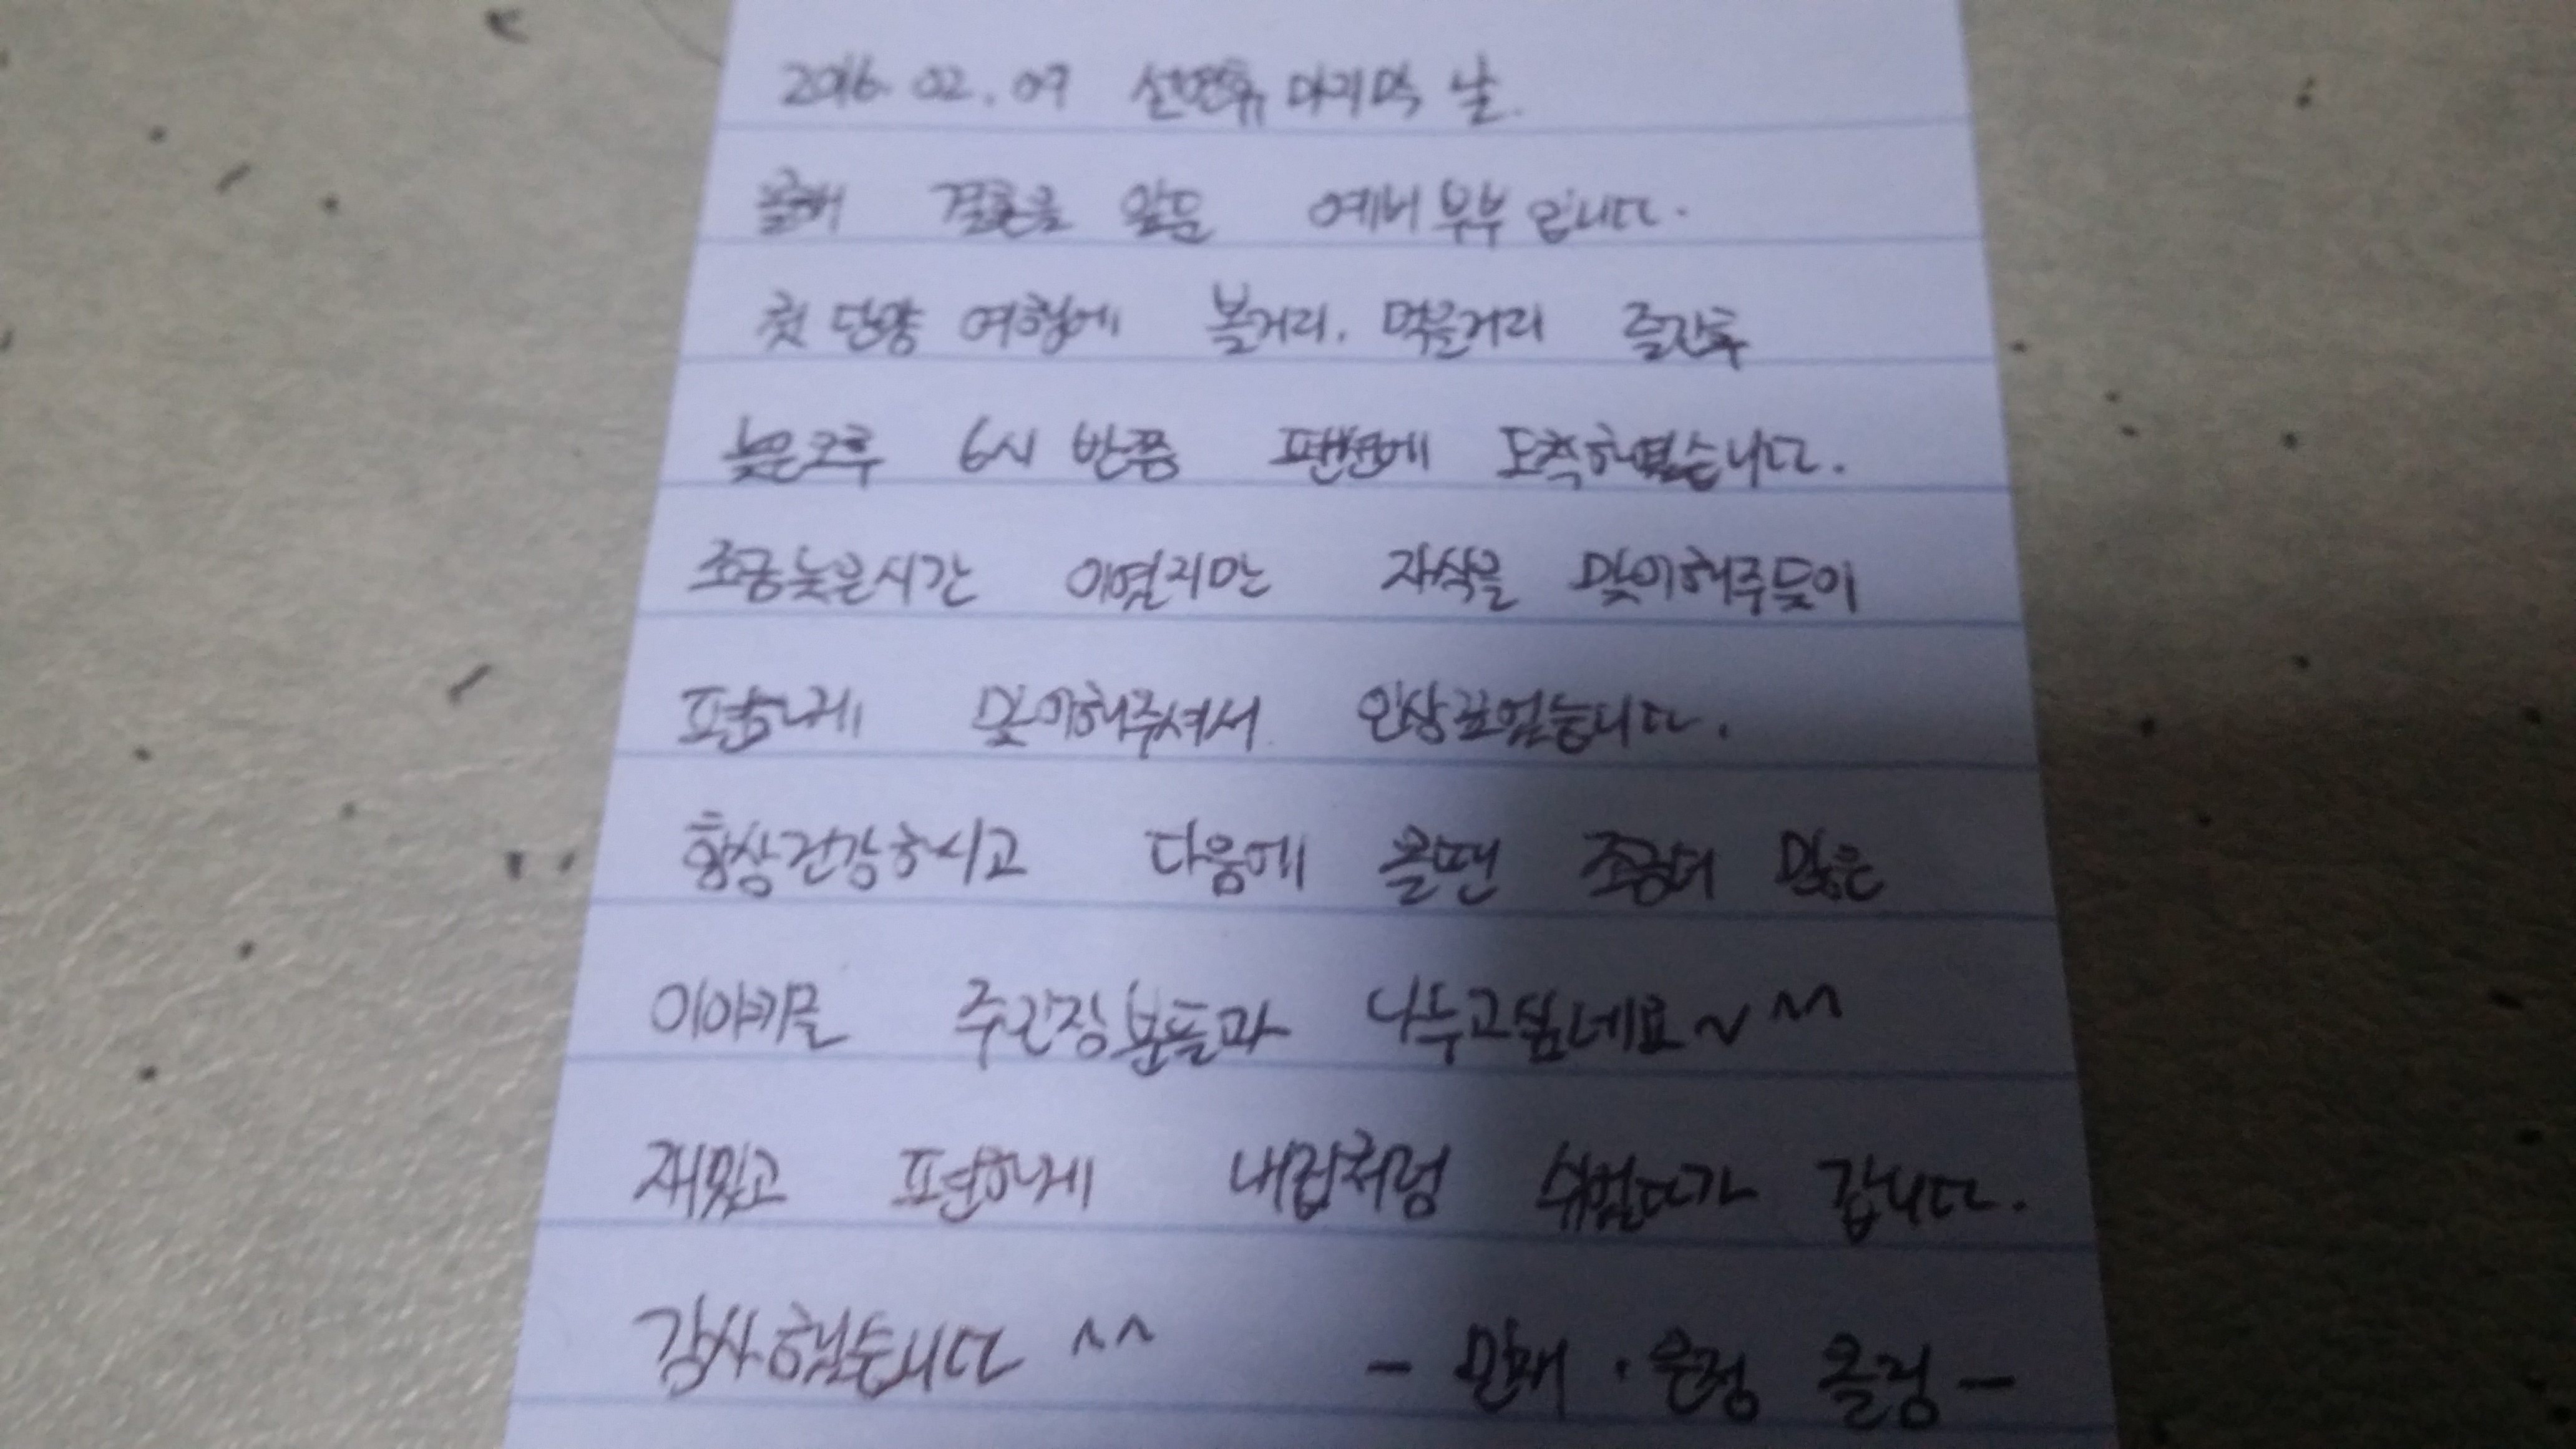 2016. 02. 09 설연휴 마지막 날.
올해 결혼을 앞둔 예비부부 입니다.
첫 단양 여행에 볼거리. 먹을거리 즐긴후
늦은오후 6시 반쯤 팬션에 도착하였습니다.
조금늦은시간 이였지만 자식을 맞이해주듯이
편하게 맞이해주셔서 인상깊었습니다.
항상건강하시고 다음에 올땐 조금더 많은
이야기를 주인장분들과 나누고싶네요~ ^^
재밌고 편하게 내집처럼 쉬었다가 갑니다.
감사했습니다 ^^ - 민재 · 은정 올림 -